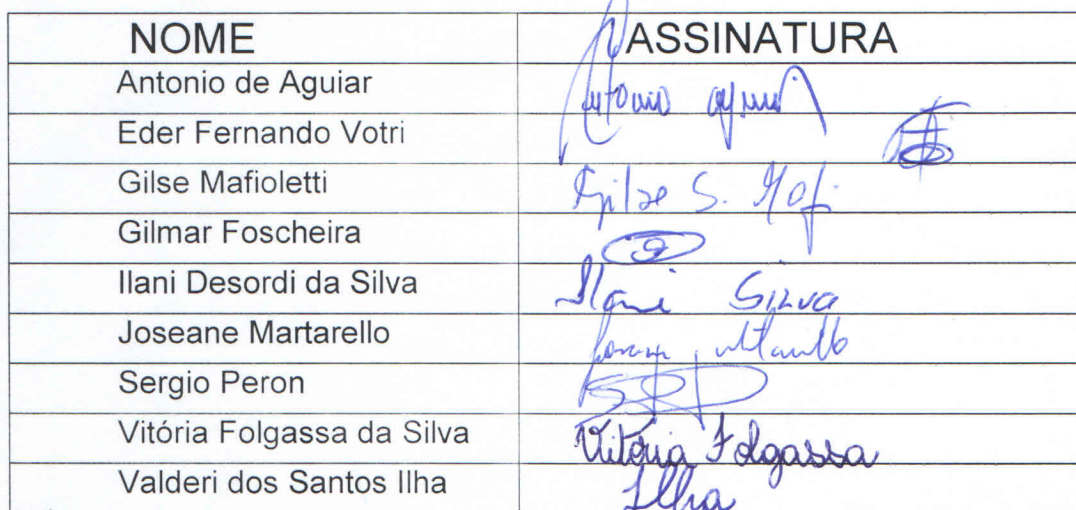 NOME ASSINATURA
Antonio de Aguiar Antonio
Eder Fernando Votri
Gilse Mafioletti Gilse S. Maf.
Gilmar Foscheira
Ilani Desordi da Silva Ilani Silva
Joseane Martarello
Sergio Peron
Vitória Folgassa da Silva Vitória Folgassa
Valderi dos Santos Ilha Ilha